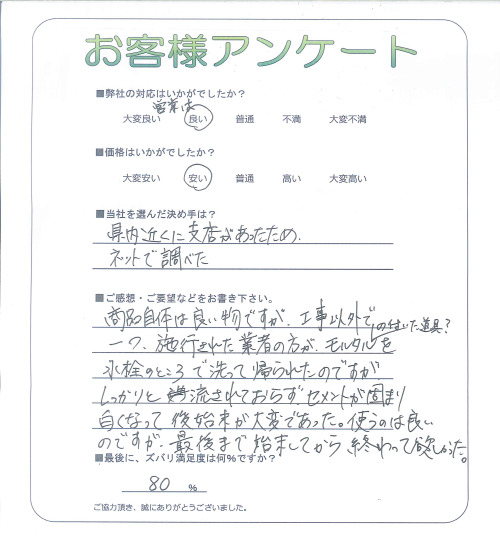 お客様アンケート
■弊社の対応はいかがでしたか?
営業は
大変良い 良い 普通 不満 大変不満
■価格はいかがでしたか?
大変安い 安い 普通 高い 大変高い
■当社を選んだ決め手は?
県内近くに支店があったため、
ネットで調べた
■ご感想・ご要望などをお書き下さい。
商品自体は良い物ですが、工事以外で
の付いた道具?
一つ、施行された業者の方が、モルタルを
水栓のところで洗って帰られたのですが
しっかりと流されておらずセメントが固まり
白くなって後始末が大変であった。使うのは良い
のですが、最後まで始末してから終わって欲しかった。
■最後に、ズバリ満足度は何%ですか?
80 %
ご協力頂き、誠にありがとうございました。